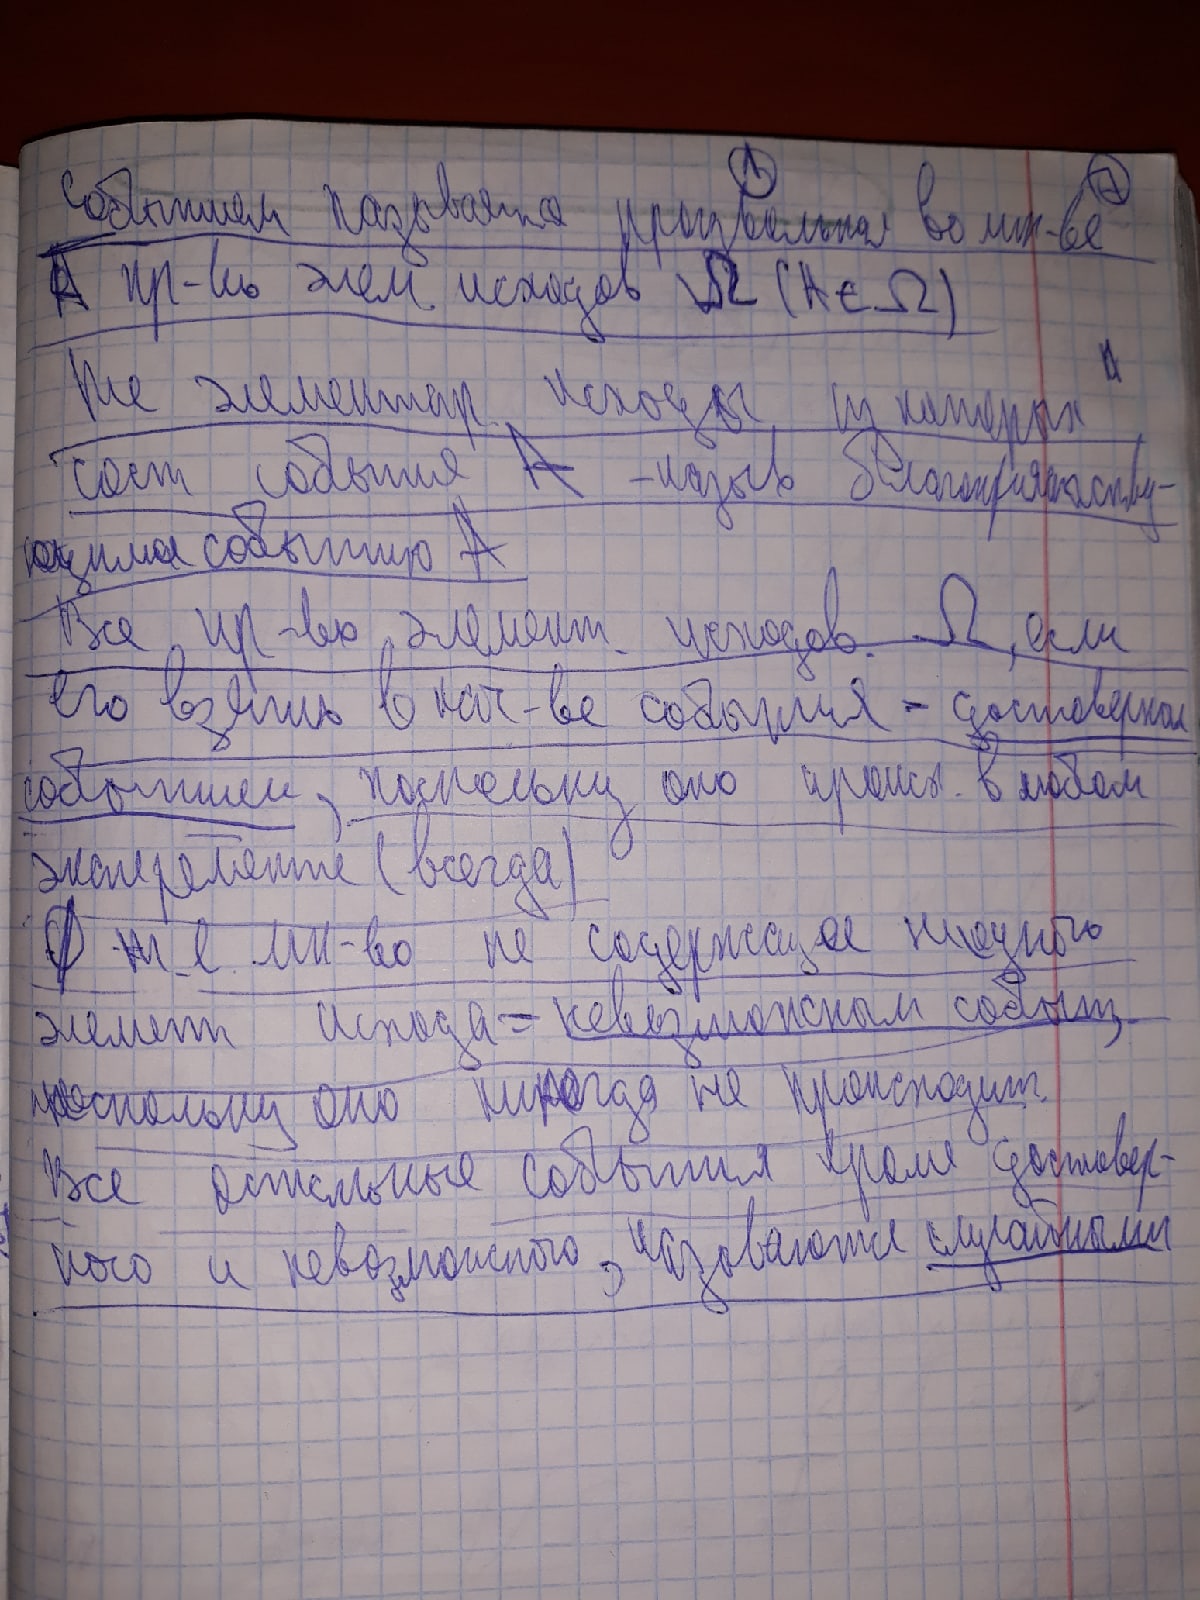 Событием называется произвольная во мн-ве
А пр-вь элем. исходов Ω (А ∈ Ω)
Те элементар. исходы, из которых
сост события А - назыв благоприятству-
ющима событию А
Все пр-во элемент. исходов. Ω, если
его взять в кач-ве события - достоверном
событием, поскольку оно происх. в любом
эксперементе (всегда)
∅ т.е. мн-во не содержащее ниодного
элемент исхода = невозможном событ,
поскольку оно никогда не происходит.
Все остальные события кроме достовер-
ного и невозможного, называются случайными